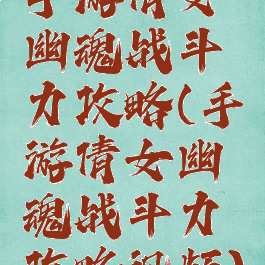 手游倩女
幽魂战斗
力攻略(手
游倩女幽
魂战斗力
攻略视频)